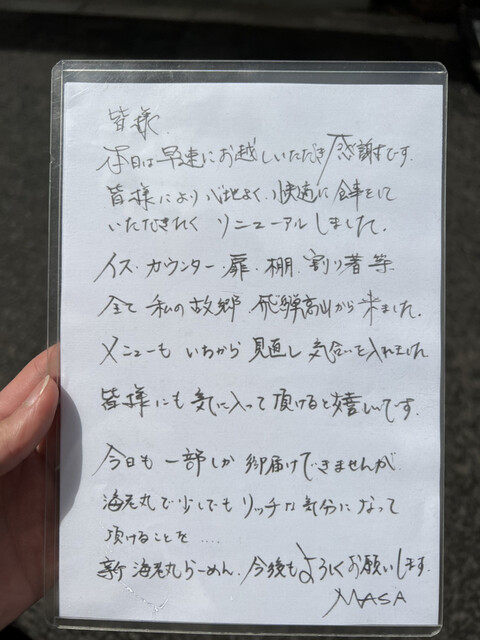 皆様
本日は早速にお越しいただき感謝です。
皆様により心地よく、快適に食事をして
いただきたくリニューアルしました。
イス・カウンター・扉・棚・割り箸等
全て私の故郷飛騨高山から来ました。
メニューもいちから見直し気合いを入れました
皆様にも気に入って頂けると嬉しいです。
今日も一部しか御届けできませんが
海老丸で少しでもリッチな気分になって
頂けることを....
新海老丸らーめん、今後もよろしくお願いします。
MASA